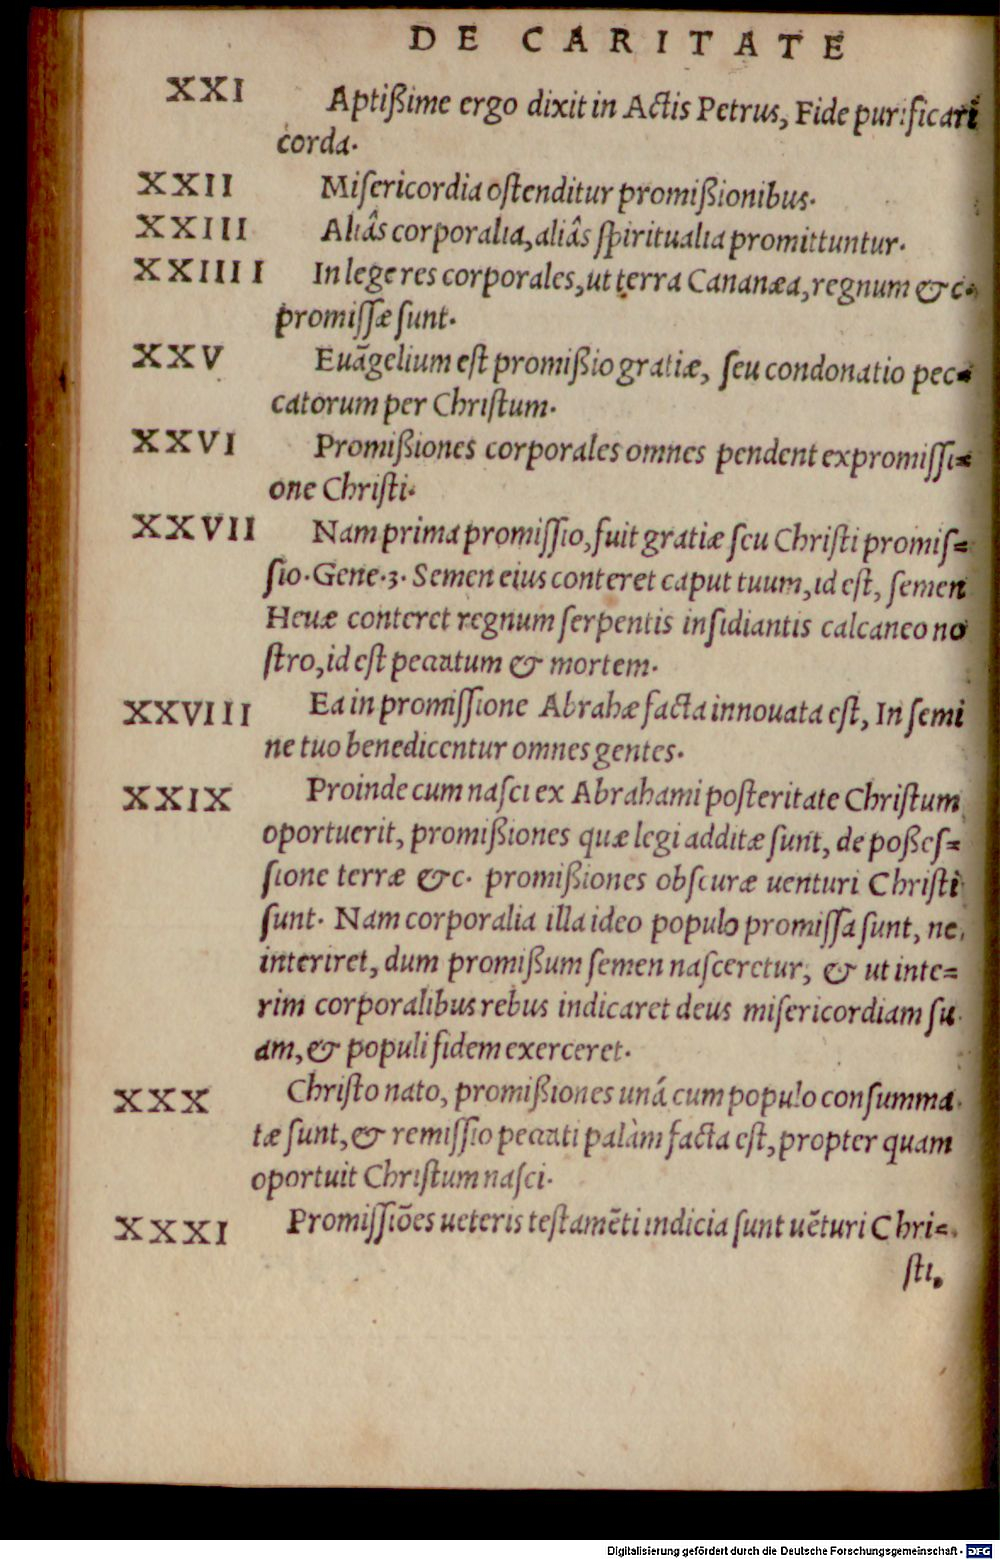 DE CARITATE
XXI Aptißime ergo dixit in Actis Petrus, Fide purificari
corda.
XXII Misericordia ostenditur promißionibus.
XXIII Aliâs corporalia, aliâs spiritualia promittuntur.
XXIIII In lege res corporales, ut terra Cananæa, regnum &c.
promissæ sunt.
XXV Euãgelium est promißio gratiæ, seu condonatio pec=
catorum per Christum.
XXVI Promißiones corporales omnes pendent ex promissi=
one Christi.
XXVII Nam prima promissio, fuit gratiæ seu Christi promis=
sio. Gene.3. Semen eius conteret caput tuum, id est, semen
Heuæ conteret regnum serpentis insidiantis calcaneo no
stro, id est peccatum & mortem.
XXVIII Ea in promissione Abrahæ facta innouata est, In semi
ne tuo benedicentur omnes gentes.
XXIX Proinde cum nasci ex Abrahami posteritate Christum
oportuerit, promißiones quæ legi additæ sunt, de poßes=
sione terræ &c. promißiones obscuræ uenturi Christi
sunt. Nam corporalia illa ideo populo promissa sunt, ne
interiret, dum promißum semen nasceretur, & ut inte=
rim corporalibus rebus indicaret deus misericordiam su
am, & populi fidem exerceret.
XXX Christo nato, promißiones unâ cum populo consumma
tæ sunt, & remissio peccati palàm facta est, propter quam
oportuit Christum nasci.
XXXI Promissiões ueteris testamẽti indicia sunt uẽturi Chri=
sti.
Digitalisierung gefördert durch die Deutsche Forschungsgemeinschaft - DFG